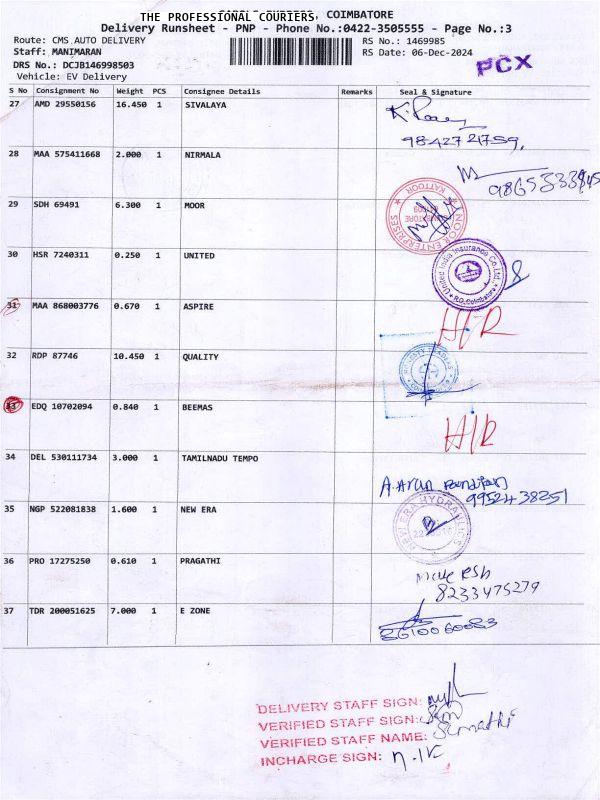 THE PROFESSIONAL COURIERS, COIMBATORE
Delivery Runsheet - PNP - Phone No.:0422-3505555 - Page No.:3
Route: CMS AUTO DELIVERY
RS No.: 1469985
Staff: MANIMARAN
RS Date: 06-Dec-2024
DRS No.: DCJB146998503
Vehicle: EV Delivery
PCX
S No Consignment No Weight PCS Consignee Details Remarks Seal & Signature
27 AMD 29550156 16.450 1 SIVALAYA
28 MAA 575411668 2.000 1 NIRMALA
29 SDH 69491 6.300 1 MOOR
NOOR ENTERPRISES
KATTOOR
30 HSR 7240311 0.250 1 UNITED
United India Insurance Co.Ltd.
R.O. Coimbatore
31 MAA 868003776 0.670 1 ASPIRE
H/R
32 RDP 87746 10.450 1 QUALITY
33 EDQ 10702094 0.840 1 BEEMAS
H/R
34 DEL 530111734 3.000 1 TAMILNADU TEMPO
A. Arun Pandian
9952438251
35 NGP 522081838 1.600 1 NEW ERA
NEW ERA HYDRAULICS
36 PRO 17275250 0.610 1 PRAGATHI
8233475279
37 TDR 200051625 7.000 1 E ZONE
8610060083
DELIVERY STAFF SIGN:
VERIFIED STAFF SIGN:
VERIFIED STAFF NAME: Sumathi
INCHARGE SIGN: